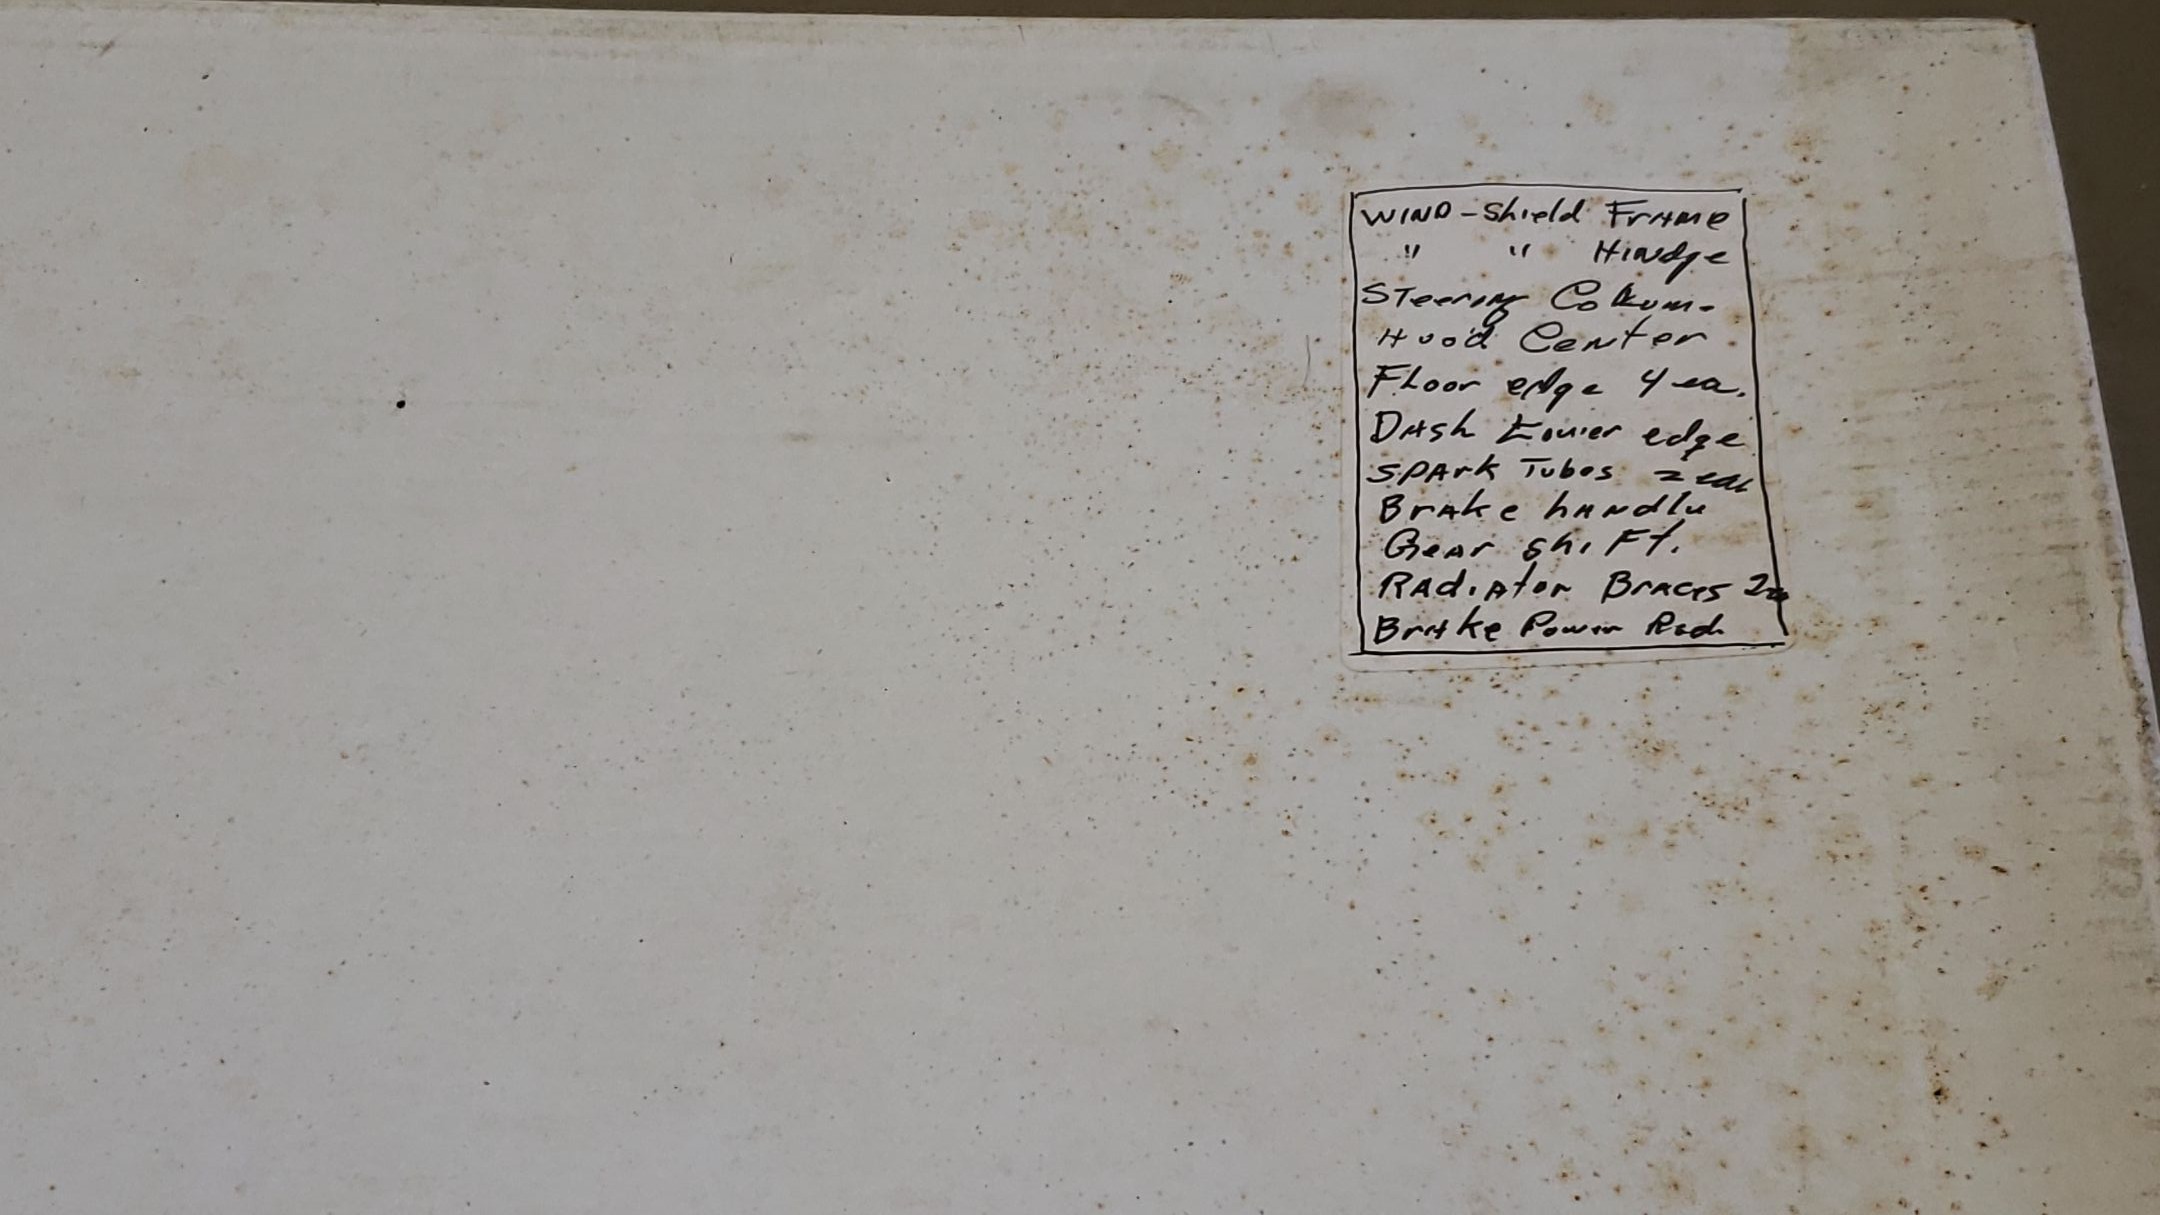 WIND-Shield FRAME
" " HINdge
STeering Collum.
Hood Center
FLoor edge 4 ea.
DASh Lower edge
SPArk Tubes 2 ea
BrAke hANdle
GeAr shiFt.
RAdiAtor BrAces 2ea
BrAke Power Rod